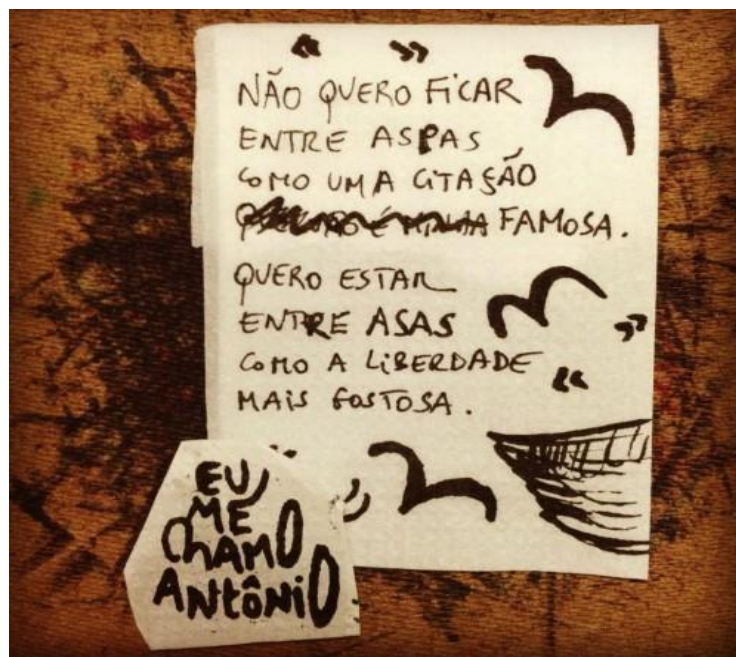 “ ”
NÃO QUERO FICAR
ENTRE ASPAS
COMO UMA CITAÇÃO
FAMOSA.
QUERO ESTAR
ENTRE ASAS
COMO A LIBERDADE
MAIS GOSTOSA.
EU
ME
CHAMO
ANTÔNIO